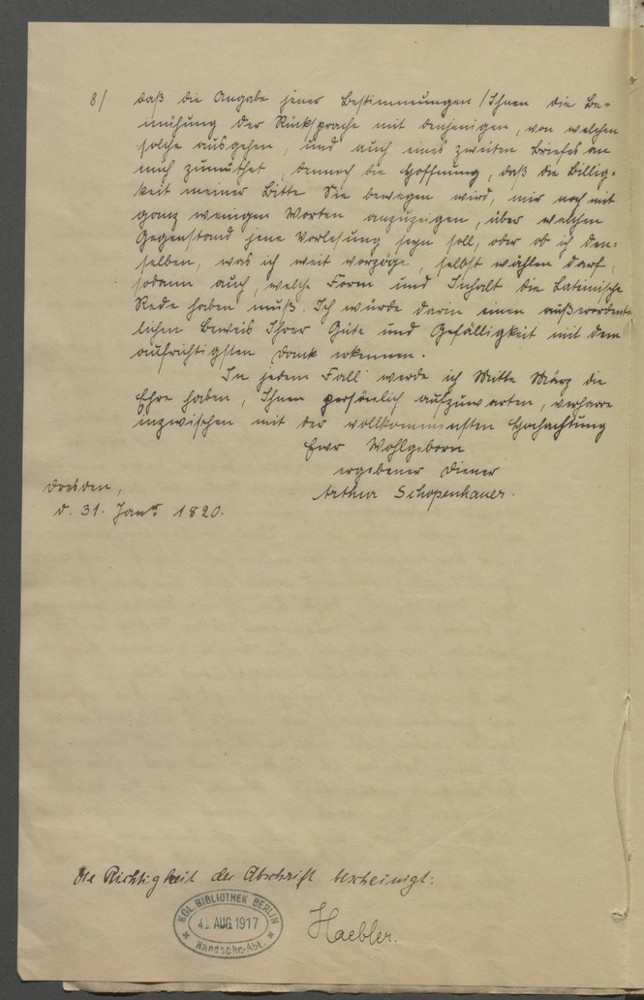 8/ daß die Angabe jener Bestimmungen Ihnen die Be-
mühung der Rücksprache mit denjenigen, von welchen
solche ausgehen, und auch eines zweiten Briefes an
mich zumuthet, dennoch die Hoffnung, daß die Billig-
keit meiner Bitte Sie bewegen wird, mir noch mit
ganz wenigen Worten anzuzeigen, über welchen
Gegenstand jene Vorlesung seyn soll, oder ob ich den-
selben, was ich weit vorzöge, selbst wählen darf,
sodann auch, welche Form und Inhalt die Lateinische
Rede haben muß. Ich würde darin einen außerordent-
lichen Beweis Ihrer Güte und Gefälligkeit mit dem
aufrichtigsten Dank erkennen.
In jedem Fall werde ich Mitte März die
Ehre haben, Ihnen persönlich aufzuwarten, verharre
inzwischen mit der vollkommensten Hochachtung
Ewr Wohlgeborn
ergebener Diener
Arthur Schopenhauer.
Dresden,
d. 31. Janr 1820.
Die Richtigkeit der Abschrift bescheinigt:
Haebler.
KGL. BIBLIOTHEK BERLIN
4. AUG. 1917
Handschr.-Abt.